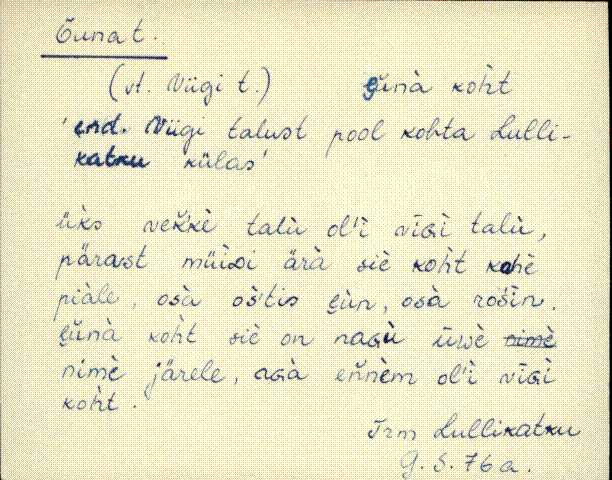 Õuna t.
(vt. Viigi t.) e̮ŭnà koh̀t
'end. Viigi talust pool kohta Lulli-
katku külas'
üks veĭ̭kkè talù ol'ì vīGì talù,
pärast müìdi ärà siè koh̀t kahè
piàle, osà oš'tis e̮ùn, osà rošìn.
e̮ŭnà koh̀t siè on naGù üwè nimè
nimè järele, aGà eňnèm ol'ì vīGì
koh̀t.
Trm Lullikatku
G. S. 76a.